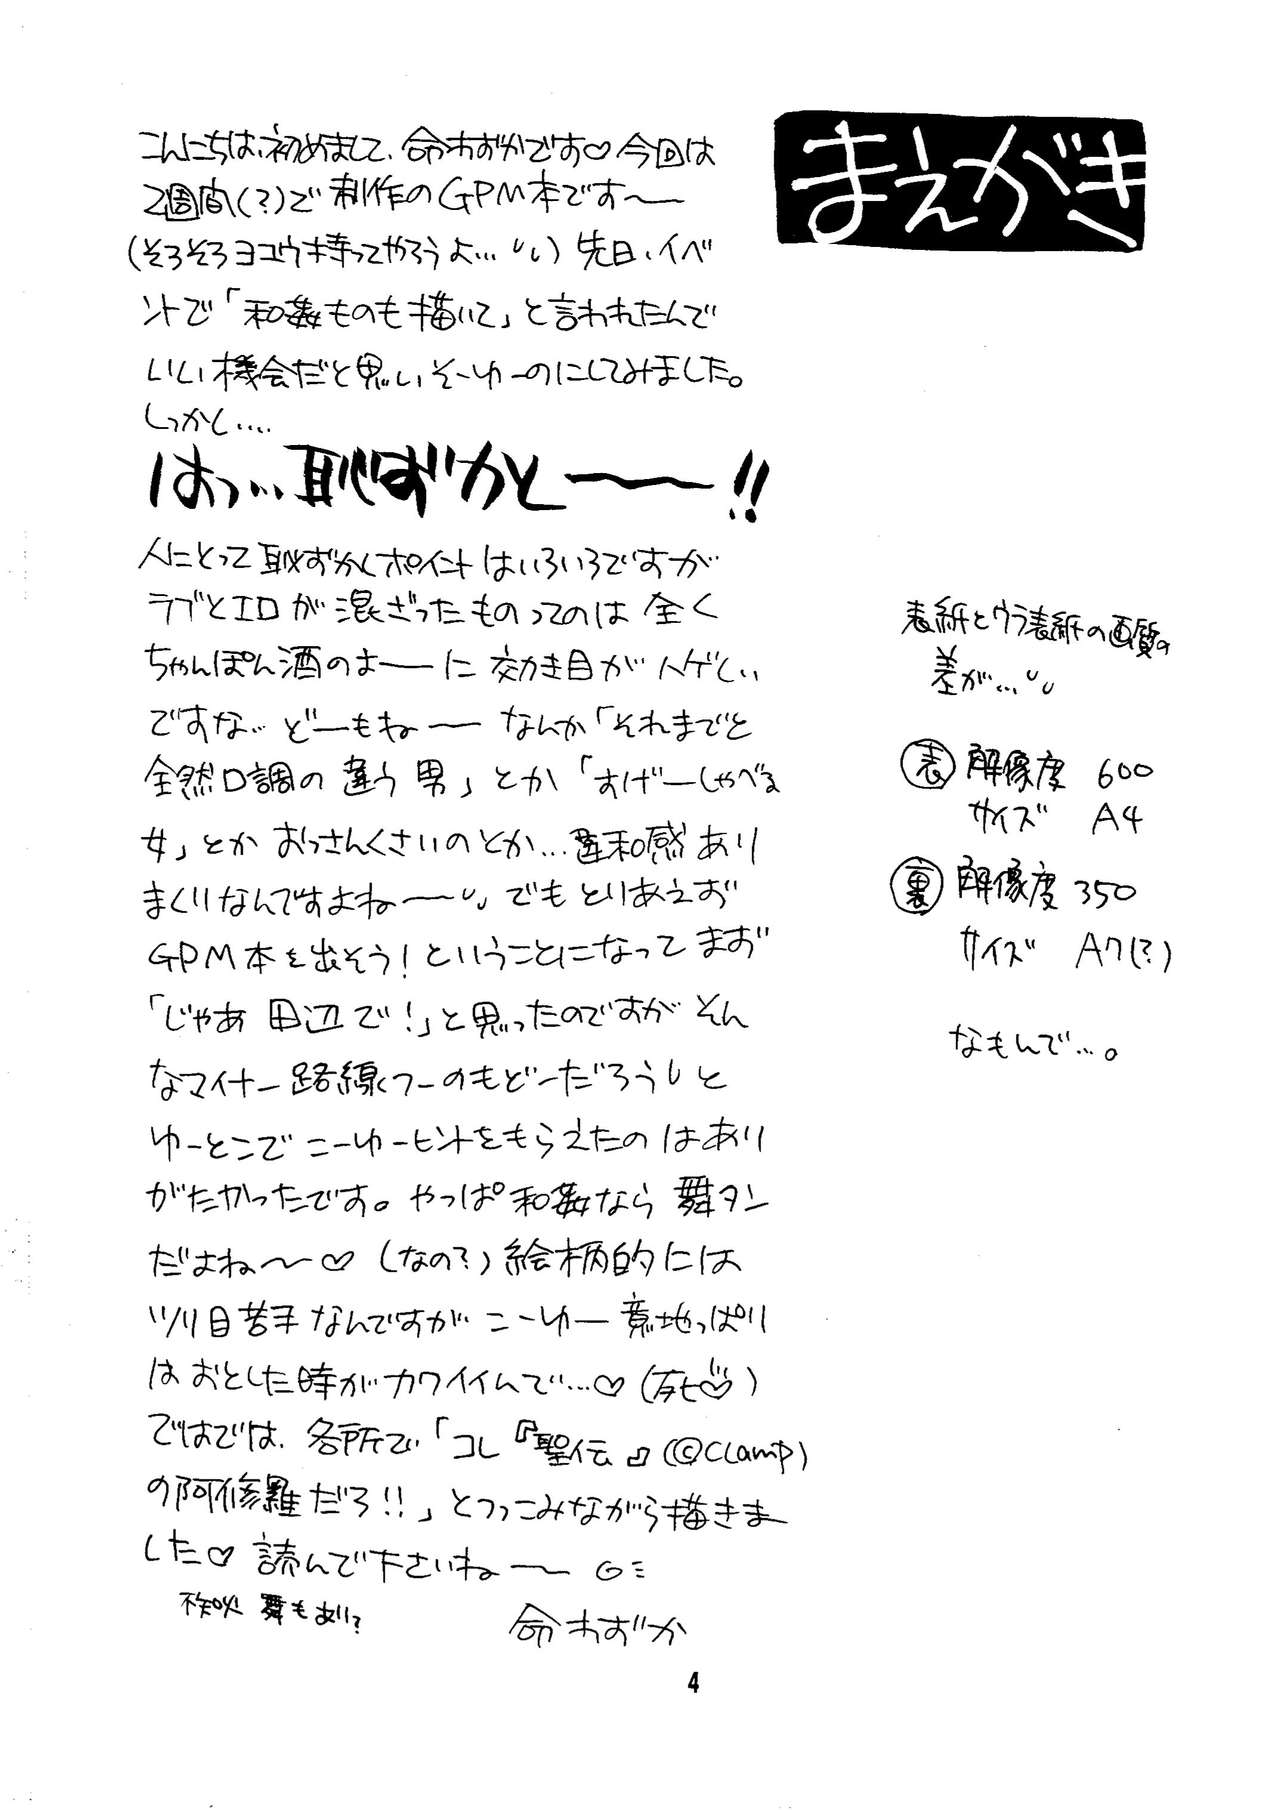 まえがき
こんにちは、初めまして、命わずかです♡今回は
2週間(?)で制作のGPM本です〜
(そろそろヨユウ持ってやろうよ…)先日、イベ
ントで「和姦ものも描いて」と言われたんで
いい機会だと思いそーゆーのにしてみました。
しっかし....
はっ…恥ずかしー〜!!
人にとって恥ずかしポイントはいろいろですが
ラブとエロが混ざったものってのは全く
ちゃんぽん酒のよーに効き目がハゲしい
ですな… どーもね〜 なんか「それまでと
全然口調の違う男」とか「すげーしゃべる
女」とかおっさんくさいのとか…違和感あり
まくりなんですよね〜 でもとりあえず
GPM本を出そう!ということになってまず
「じゃあ田辺で!」と思ったのですがそん
なマイナー路線くフーのもどーだろうと
ゆーとこでこーゆーヒントをもらえたのはあり
がたかったです。やっぱ和姦なら舞タン
だよね〜♡(なの?)絵柄的には
ツリ目苦手なんですがこーゆー意地っぱり
はおとした時がカワイイんで…♡(死♡)
ではでは、各所で「コレ『聖伝』(©CLAMP)
の阿修羅だろ!!」とつっこみながら描きま
した♡読んで下さいね〜
舞もあり?
命わずか
表紙とウラ表紙の画質の
差が…
表 解像度 600
サイズ A4
裏 解像度 350
サイズ A7(?)
なもんで…。
4